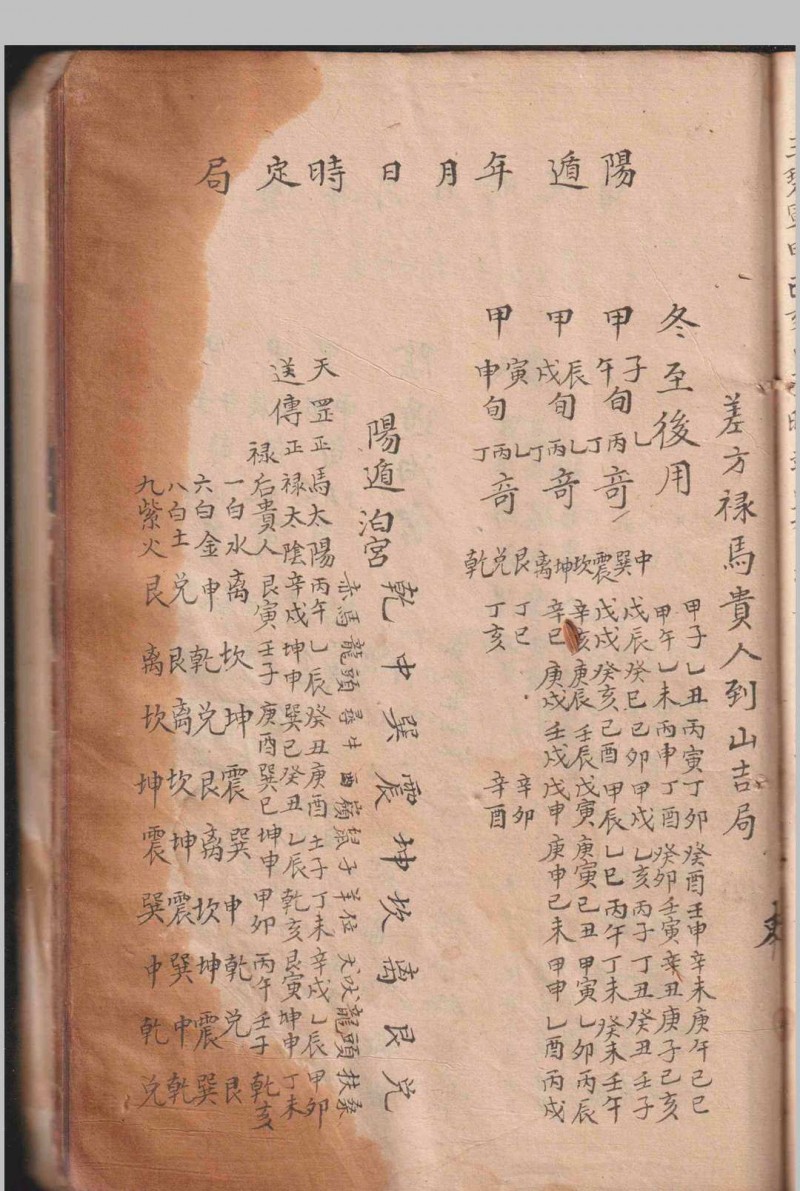 陽遁年月日時定局
差方禄馬貴人到山吉局
冬至後用
甲子午旬乙丙丁奇
甲辰戌旬乙丙丁奇
甲寅申旬乙丙丁奇
中巽震坎坤离艮兑乾
甲子乙丑丙寅丁卯癸酉壬申辛未庚午己巳
甲午乙未丙申丁酉癸卯壬寅辛丑庚子己亥
戊辰癸巳己卯甲戌乙亥丙子丁丑癸丑壬子
戊戌癸亥己酉甲辰乙巳丙午丁未癸未壬午
辛亥庚辰壬辰戊寅庚寅己丑甲寅乙卯丙辰
辛巳庚戌壬戌戊申庚申己未甲申乙酉丙戌
丁巳辛卯
丁亥辛酉
陽遁泊宮乾中巽震坤坎离艮兑
赤馬龍頭尋牛西嶺鼠子羊位犬吠龍頭扶桑
天罡正馬太陽丙午乙辰癸丑庚酉壬子丁未辛戌乙辰甲卯
送傳正禄太陰辛戌坤申巽巳癸丑乙辰乾亥艮寅坤申丁未
禄右貴人艮寅壬子庚酉巽巳坤申甲卯丙午壬子乾亥
一白水离坎坤震巽申乾兑艮
六白金申乾兑艮离坎坤震巽
八白土兑艮离坎坤震巽中乾
九紫火艮离坎坤震巽中乾兑